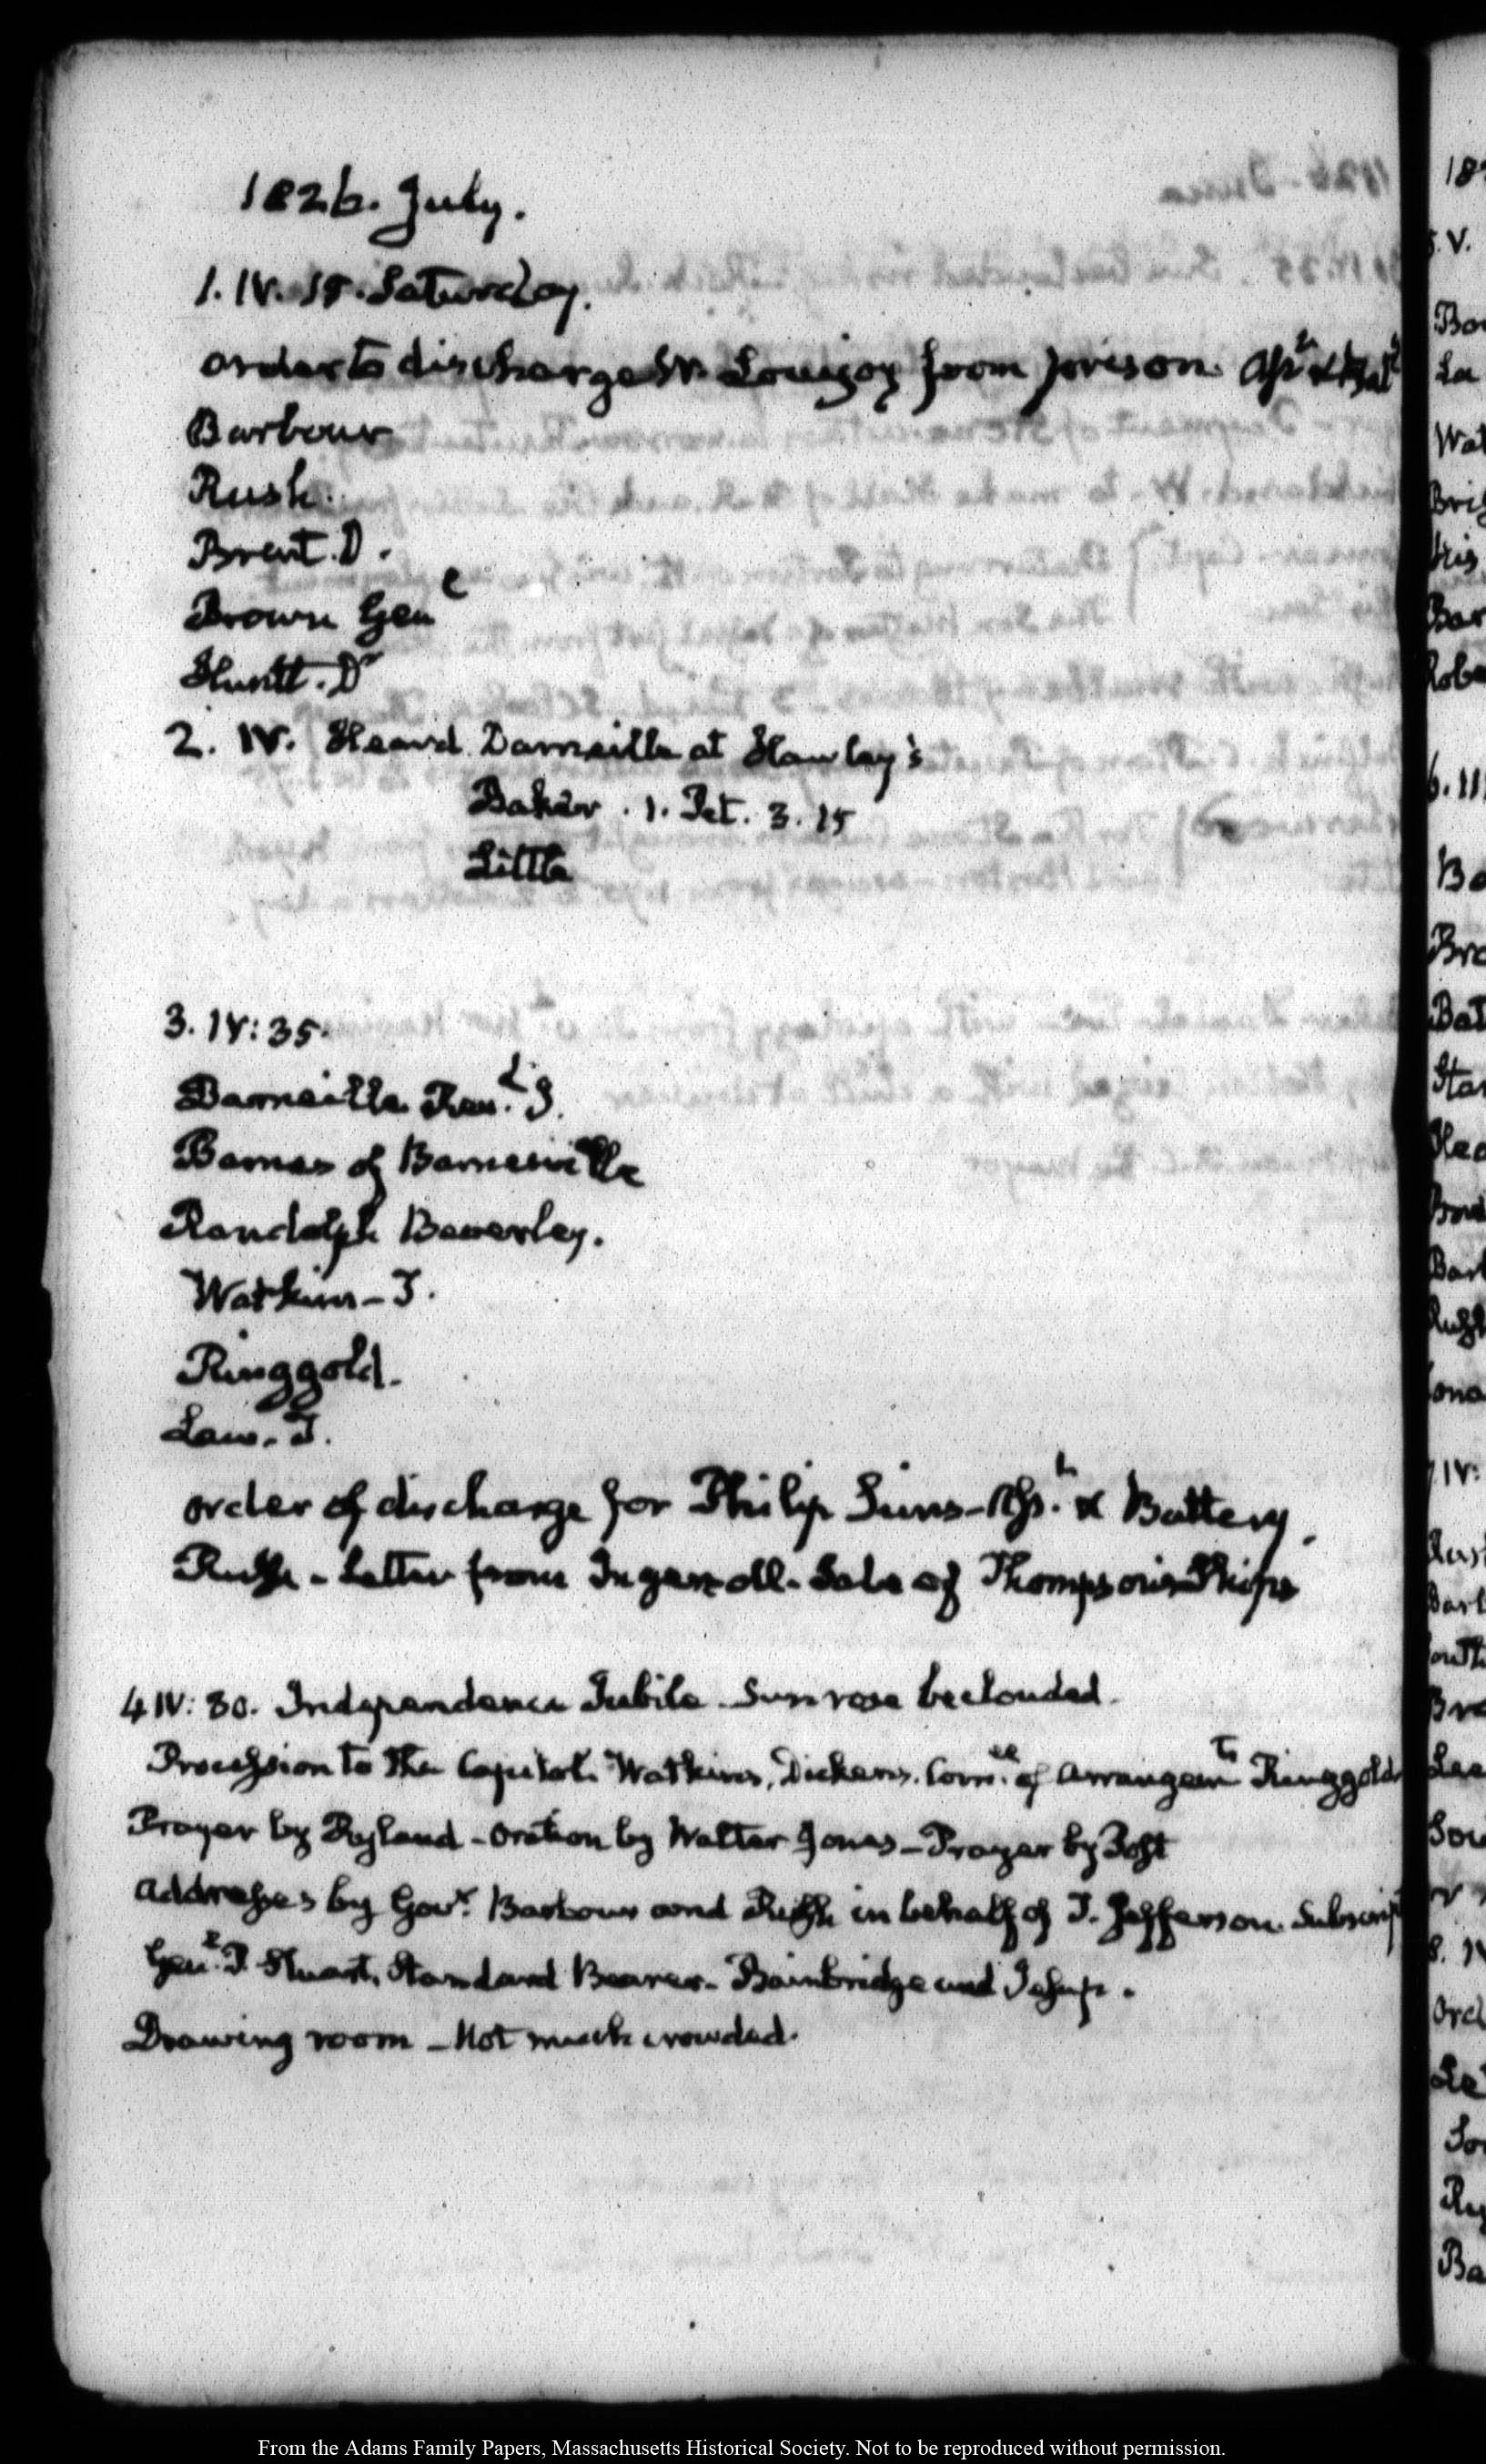 1826. July.
1. IV. 15. Saturday.
order to discharge Lovejoy from prison. Ass.t & Bat
Barbour
Rush.
Brent. D.
Brown Gen.l
Huntt. Dr
2. IV. Heard Darneille at Hawley's
Baker. 1. Pet. 3. 15
Little
3. IV: 35.
Darneille Rev.d J.
Barnes of Barnesville
Randolph Beverley.
Watkins - T.
Ringgold.
Law. T.
order of discharge for Philip Sims - Ass.t & Battery.
Rush - Letter from Ingersoll. Sale of Thompson's Ships
4 IV: 30. Independence Jubile. Sun rose beclouded.
Procession to the Capitol. Watkins, Dickens. Com.ee of Arrangem.ts Ringgold
Prayer by Ryland - Oration by Walter Jones - Prayer by Post
Addresses by Gov.r Barbour and Rush in behalf of T. Jefferson. Subscript
Gen.l P. Stuart, Standard Bearer. Bainbridge and Jesup.
Drawing room - Not much crowded.
From the Adams Family Papers, Massachusetts Historical Society. Not to be reproduced without permission.